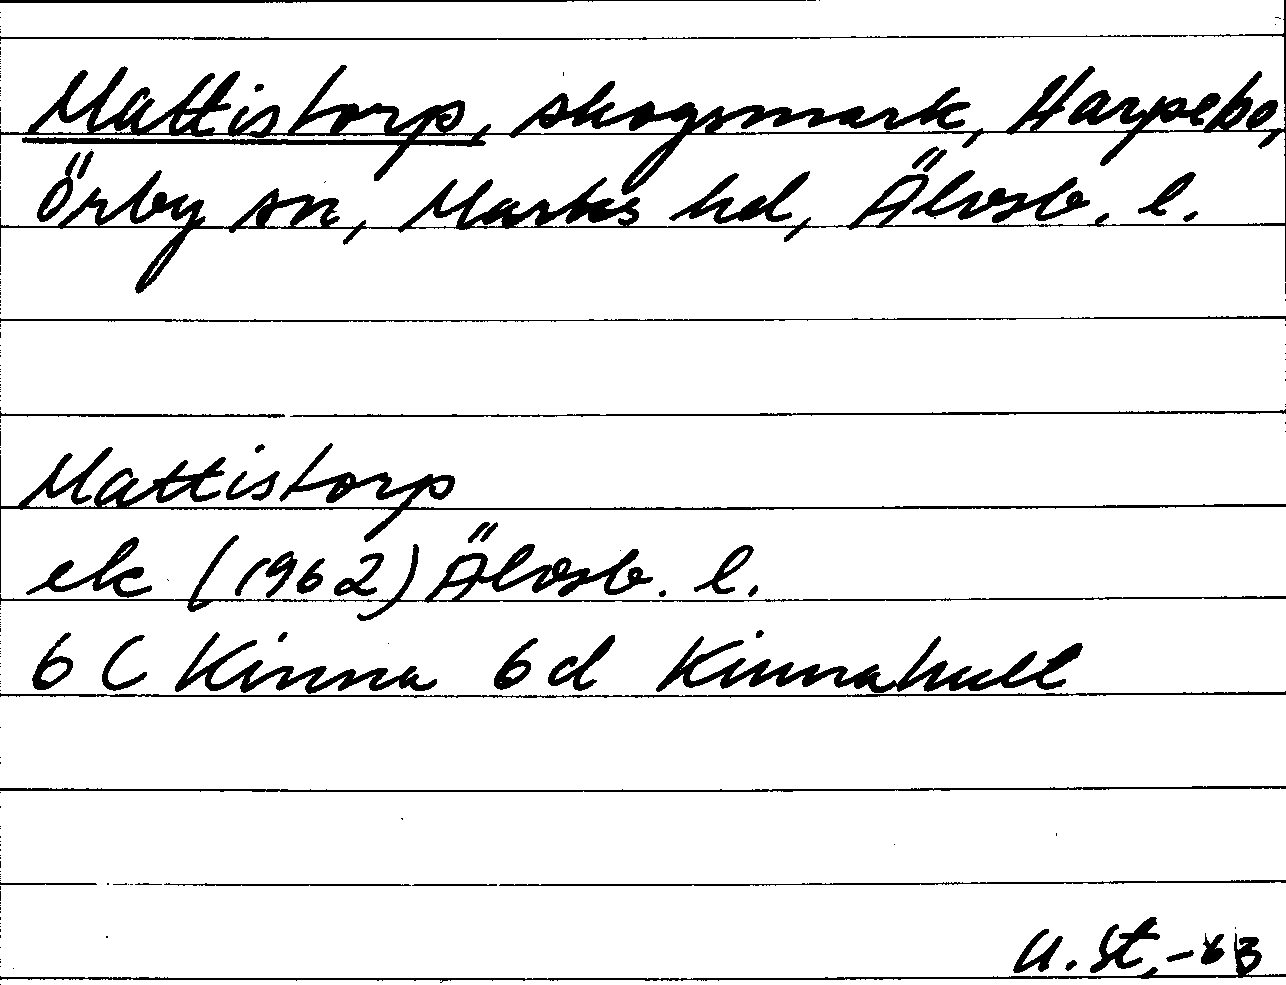 Mattistorp, skogsmark, Harpebo,
Örby sn, Marks hd, Älvsb. l.
Mattistorp
ek (1962) Älvsb. l.
6 C Kinna 6 d Kinnahult
U. St, -63